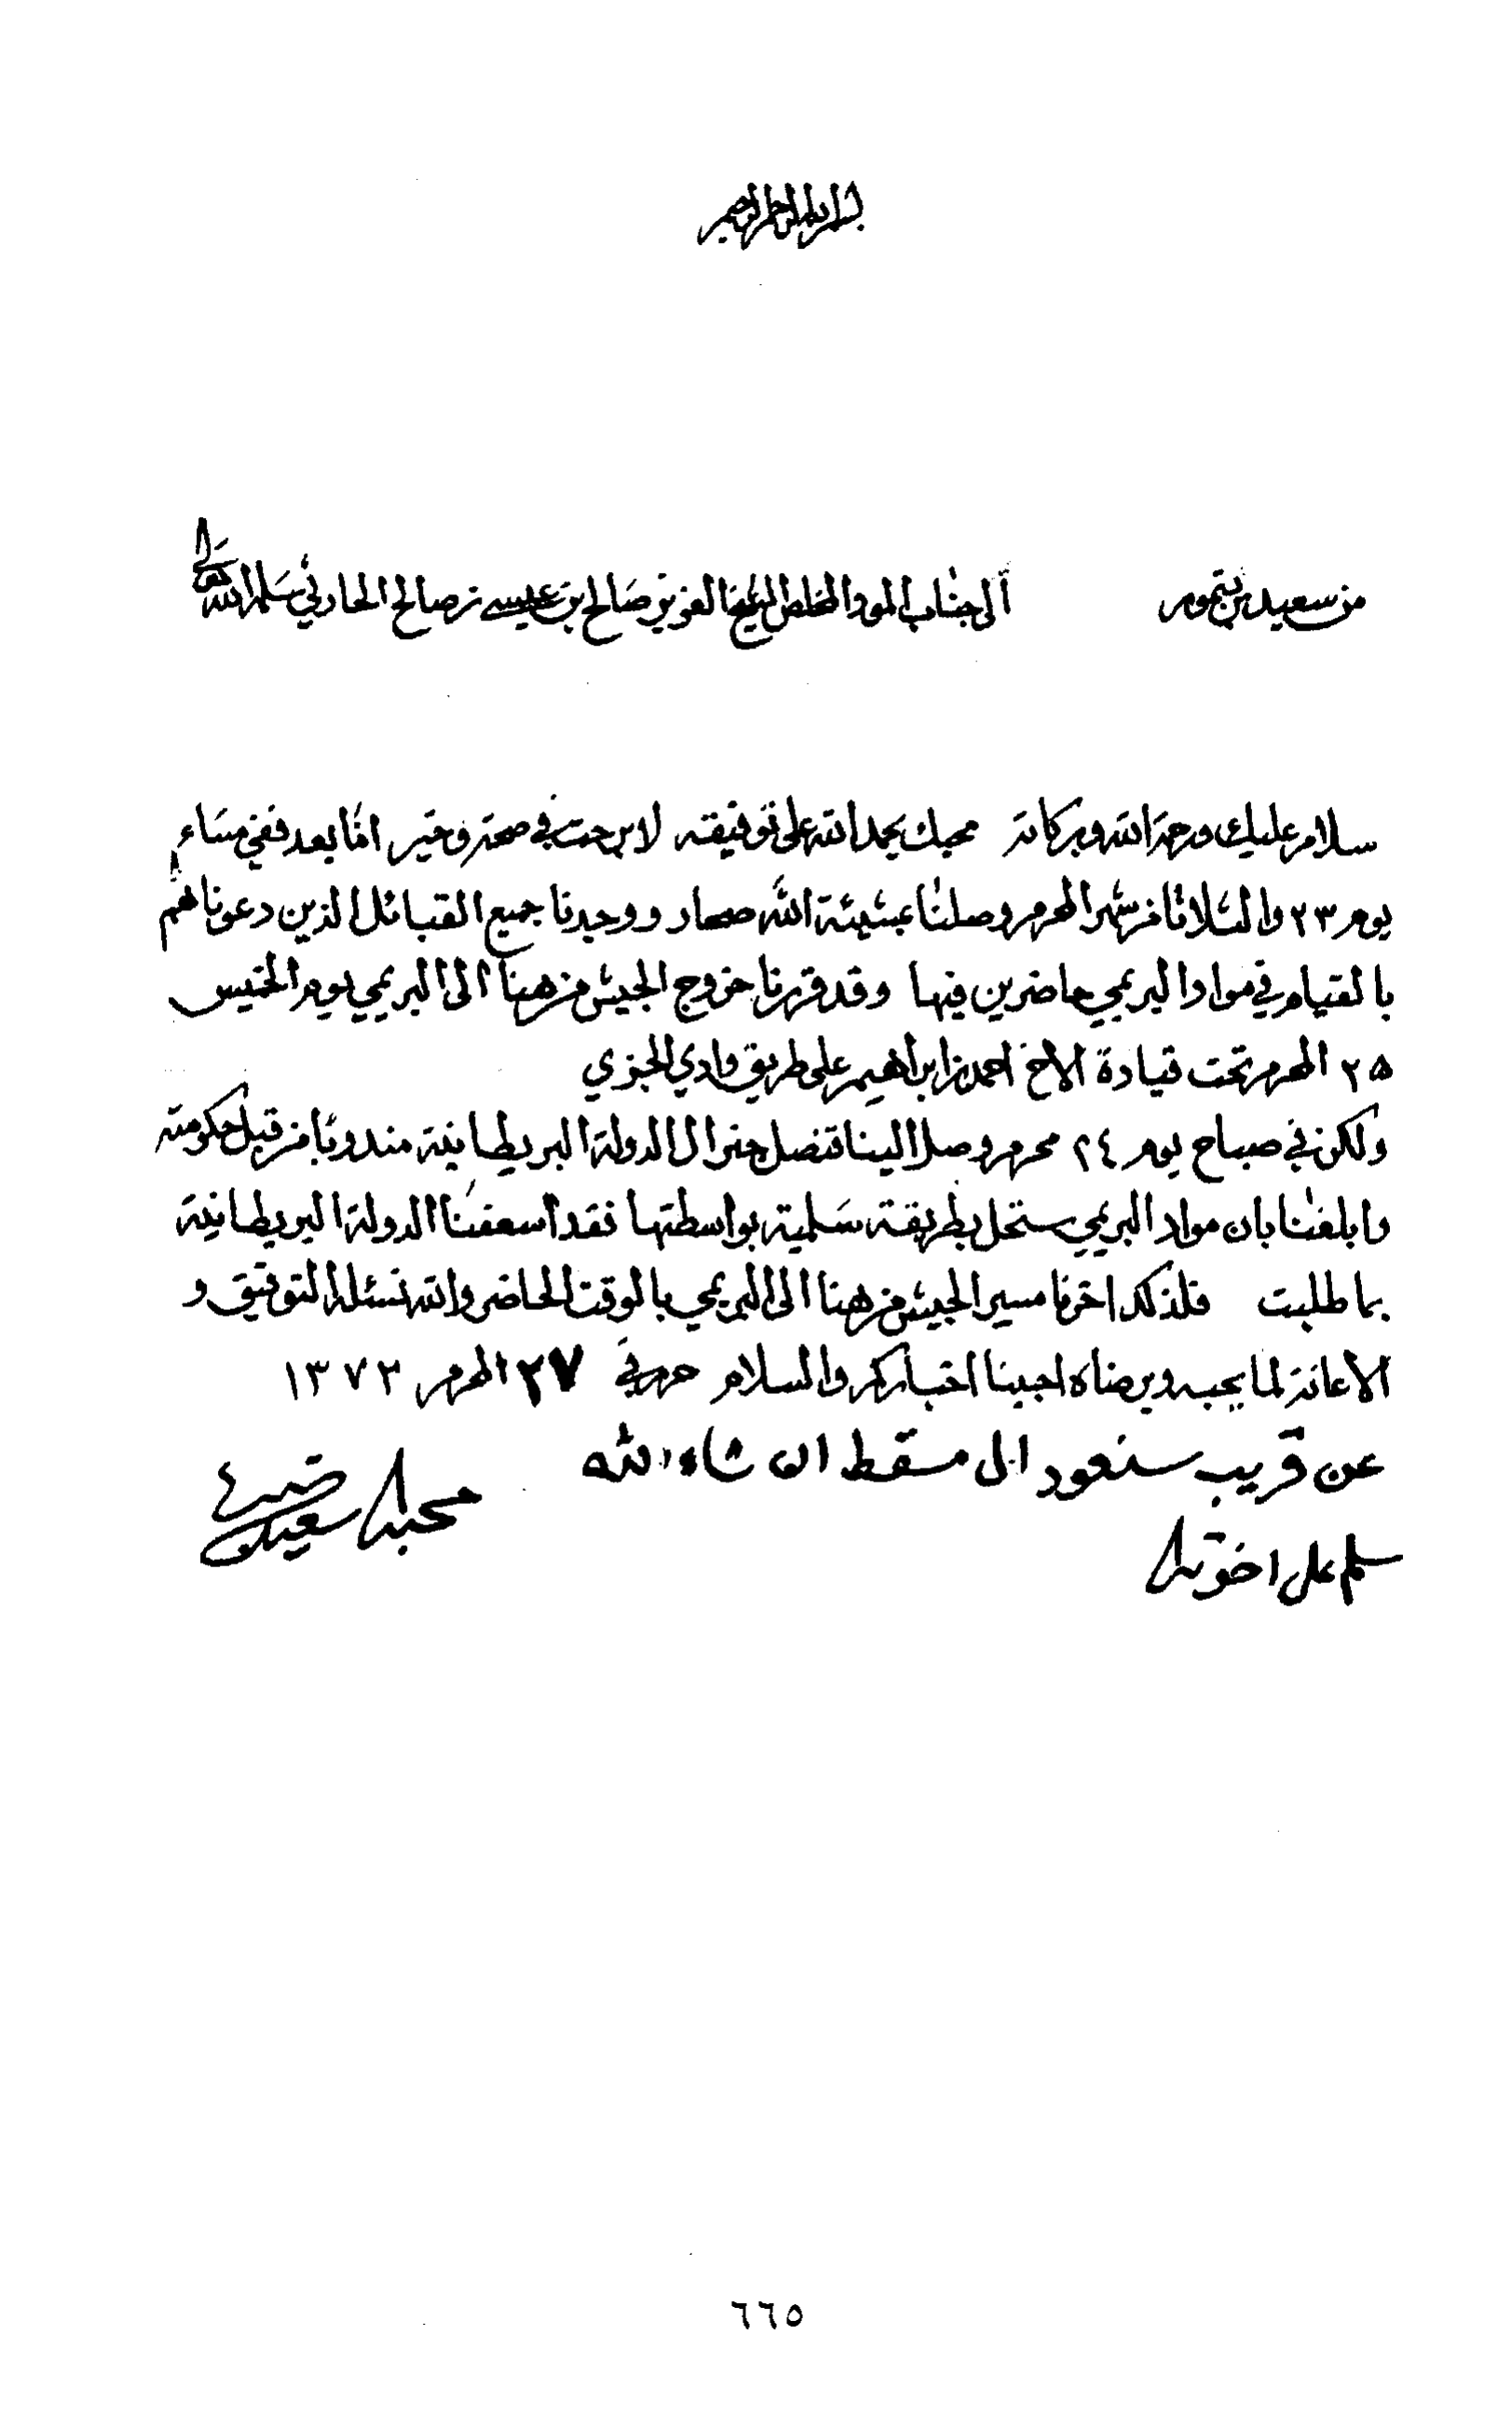 بسم الله الرحمن الرحيم
من سعيد بن تيمور الى جناب المود المخلص الشيخ العزيز صالح بن عيسى بن صالح الحارثي سلمه الله تعالى
سلام عليك ورحمة الله وبركاته محبك بحمد الله على توفيقه لا برحت في صحة وخير اما بعد ففي مساء
يوم ٢٣ والثلاثا من شهر المحرم وصلنا بمشيئة الله صحار ووجدنا جميع القبائل الذين دعوناهم
بالقيام في مواد البريمي حاضرين فيها وقد قررنا خروج الجيش من هنا الى البريمي يوم الخميس
٢٥ المحرم تحت قيادة الاخ احمد بن ابراهيم على طريق وادي الجزي
ولكن في صباح يوم ٢٤ محرم وصل الينا قنصل جنرال الدولة البريطانية مندوبا من قبل حكومته
وابلغنا بان مواد البريمي ستحل بطريقة سلمية بواسطتها فقد اسعفنا الدولة البريطانية
بما طلبت فلذلك اخرنا مسير الجيش من هنا الى البريمي بالوقت الحاضر والله نسئله التوفيق و
الاعانة لما يحبه ويرضاه اجبنا اخباركم والسلام حرر في ٢٧ المحرم ١٣٧٢
عن قريب سنعود الى مسقط ان شاء الله
محبك سعيد
سلم على اخوتك
٦٦٥